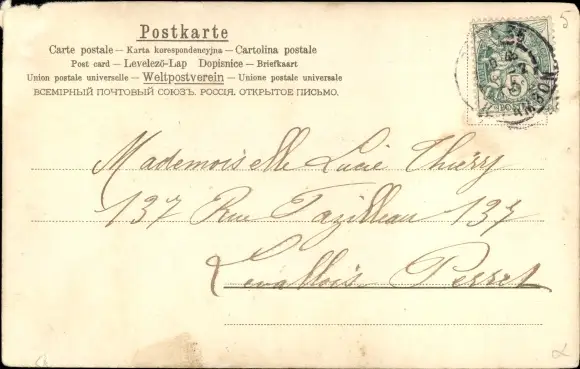 Postkarte
Carte postale — Karta korespondencyjna — Cartolina postale
Post card — Levelező-Lap Dopisnice — Briefkaart
Union postale universelle — Weltpostverein — Unione postale universale
ВСЕМІРНЫЙ ПОЧТОВЫЙ СОЮЗЪ. РОССІЯ. ОТКРЫТОЕ ПИСЬМО.
5
5
Mademoiselle Lucie Thiéry
137 Rue Fazilleau 137
Levallois Perret